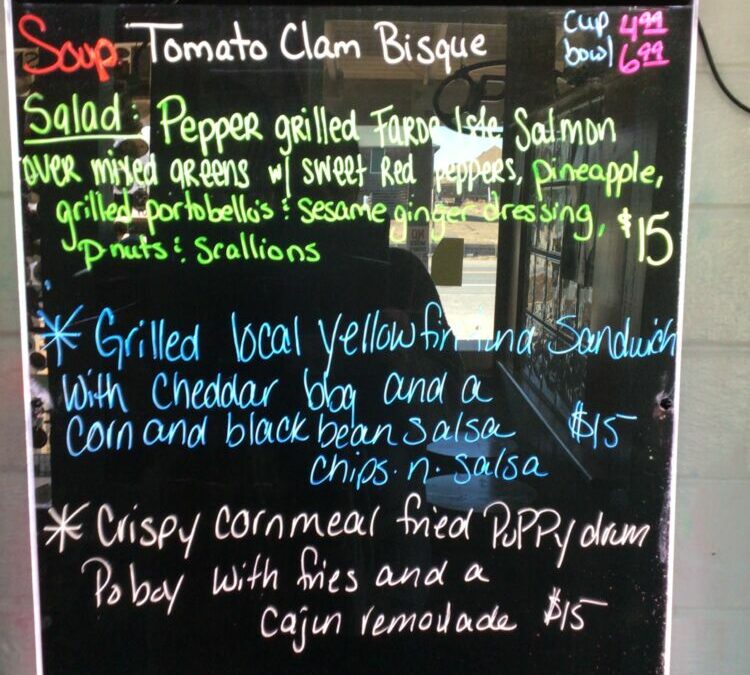 Soup Tomato Clam Bisque
cup 4.99
bowl 6.99
Salad: Pepper grilled Faroe Isle Salmon
over mixed greens w/ sweet Red peppers, pineapple,
grilled portobello's & sesame ginger dressing,
p.nuts & scallions $15
* Grilled local yellowfin tuna Sandwich
with cheddar bbq and a
corn and black bean salsa $15
chips.n.salsa
* Crispy cornmeal fried Puppy drum
Po boy with fries and a
cajun remoulade $15